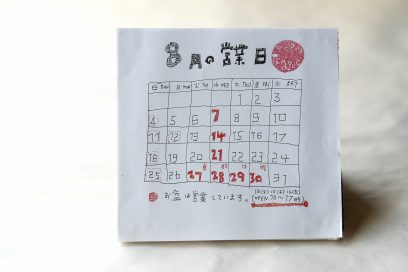 8月の営業日
日 SUN 月 MON 火 TUE 水 WED 木 THU 金 FRI 土 SAT
1 2 3
4 5 6 7 8 9 10
11 12 13 14 15 16 17
18 19 20 21 22 23 24
25 26 27 28 29 30 31
お盆は営業しています。
OPEN 10〜17時